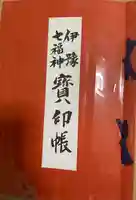 伊豫
七福神
寶印帳